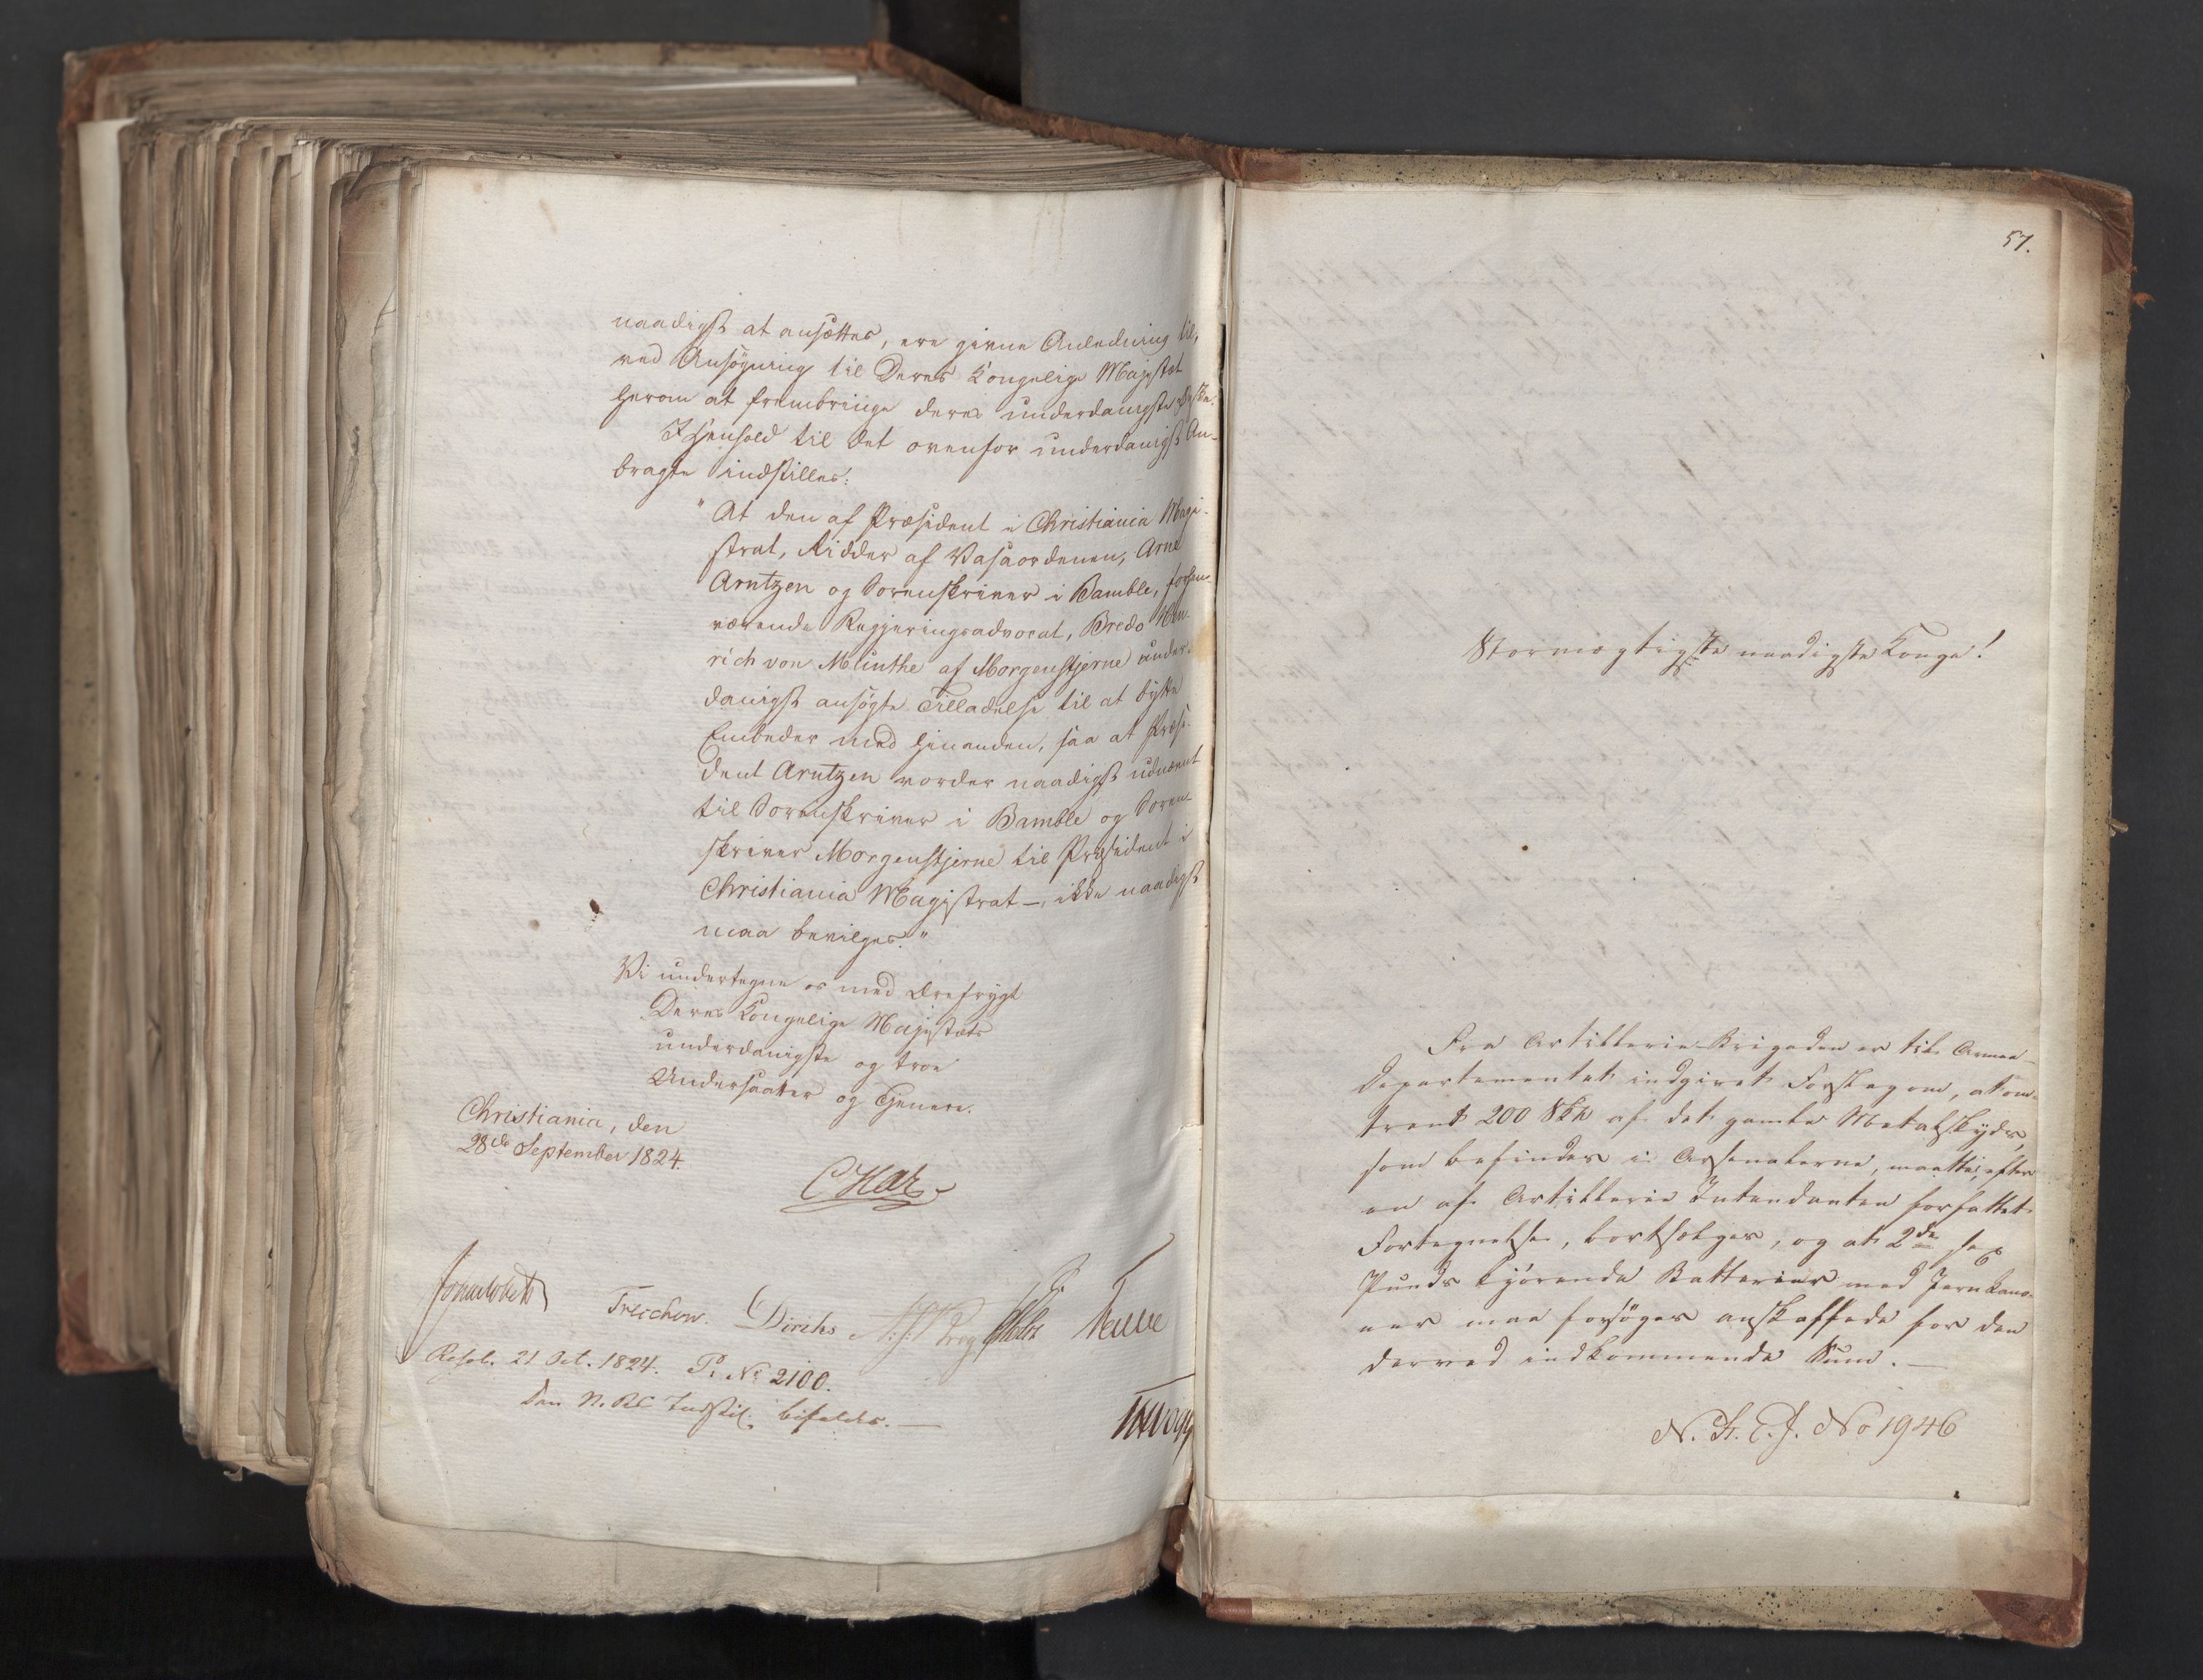 naadigst at ansættes, ere givne Anledning til,
ved Ansøgning til Deres Kongelige Majestæt
herom at frembringe deres underdanigste Ønske.
I Henhold til det ovenfor underdanigst An-
bragte indstilles:
"At den af Præsident i Christiania Magi-
strat, Ridder af Vasaordenen, Arnt
Arntzen og Sorenskriver i Bamble, forhen-
værende Regjeringsadvocat, Bredo Hen-
rich von Munthe af Morgenstjerne under-
danigst ansøgte Tilladelse til at bytte
Embeder med hinanden, saa at Præsi-
dent Arntzen vorder naadigst udnævnt
til Sorenskriver i Bamble og Soren-
skriver Morgenstjerne til Præsident i
Christiania Magistrat –, ikke naadigst
maa bevilges."
Vi undertegne os med Ærefrygt
Deres Kongelige Majestæts
underdanigste og troe
Undersaatter og Tjenere.
Christiania, den
28de September 1824.
Treschow. Diriks
Resol. 21 Oct. 1824. P. No 2100.
Den N. RS Indstil. bifaldes. —
57.
Stormægtigste naadigste Konge!
Fra Artillerie-Brigaden er til Armee-
Departementet indgivet Forslag om, at om-
trent 200 Sk℔ af det gamle Metalskyds,
som befindes i Arsenalerne, maatte, efter
en af Artillerie Intendanten forfattet
Fortegnelse, bortsælges, og at 2de sex
Punds kjørende Batterier med Jernkano-
ner maa forsøges anskaffede for den
derved indkommende Sum. —
N. St. E. J. No 1946